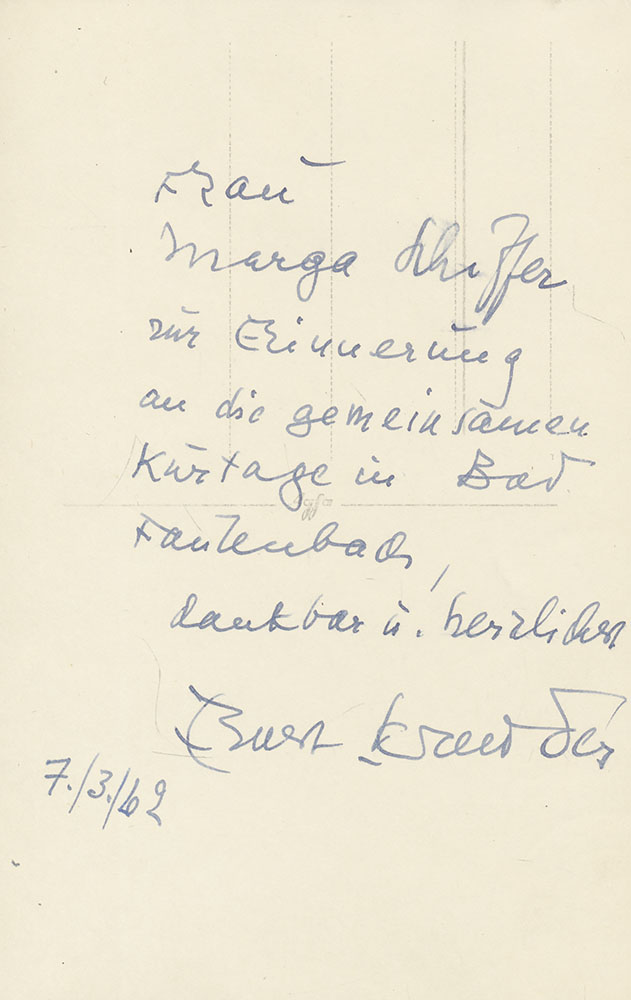 Frau
Marga Schiffer
zur Erinnerung
an die gemeinsamen
Kurtage in Bad
Faulenbach,
dankbar u. herzlichst
Ernst Kreuder
7./3./62